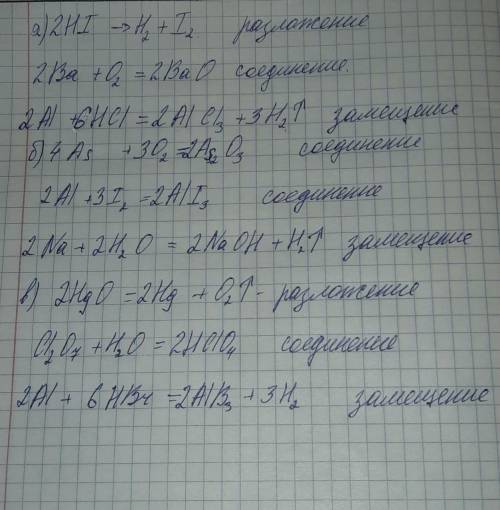 а) 2HI → H₂ + I₂ разложение
2Ba + O₂ = 2BaO соединение.
2Al + 6HCl = 2AlCl₃ + 3H₂↑ замещение
б) 4As + 3O₂ = 2As₂O₃ соединение
2Al + 3I₂ = 2AlI₃ соединение
2Na + 2H₂O = 2NaOH + H₂↑ замещение
в) 2HgO = 2Hg + O₂↑ - разложение
Cl₂O₇ + H₂O = 2HClO₄ соединение
2Al + 6HBr = 2AlB₃ + 3H₂ замещение